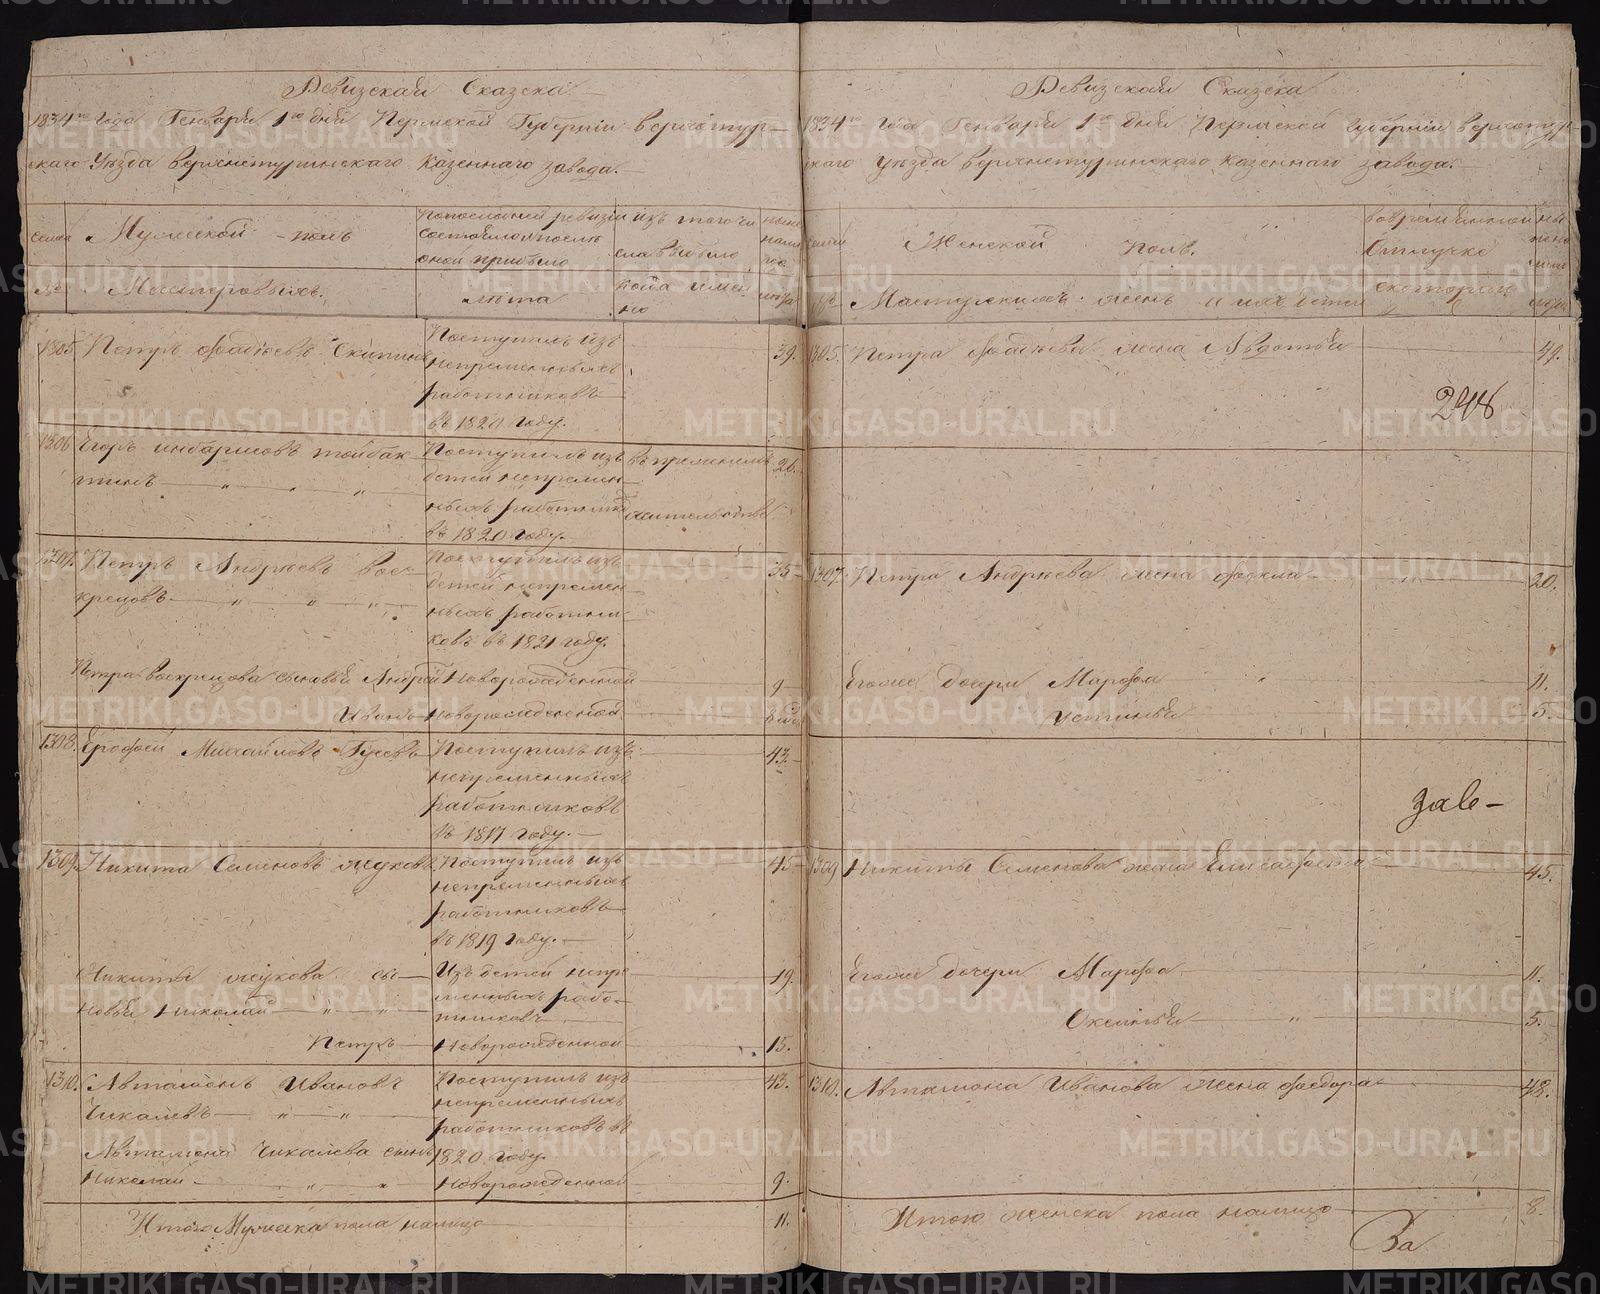 Ревизская Сказска
1834го года Генваря 1го дня Пермской Губернии верхотур-
скаго Уезда верхнетуринскаго казеннаго завода.
Мужеской полъ
Попоследней ревизии
состояло и после
оной прибыло
изъ того чи
сла выбыло
ныне
на ли
цо
Мастеровыхъ.
лета
когда имен
но
1305. Петръ Фадеевъ Скипинъ
Поступилъ изъ
непременныхъ
работниковъ
въ 1820 году.
39.
1306 Егоръ инбарисовъ тойбак
тинъ
Поступилъ изъ
детей непремен
ныхъ работнико
въ 1820 году.
26.
жительстве
1307. Петръ Андреевъ Вос-
крецовъ
Поступилъ изъ
детей непремен-
ныхъ работни-
ковъ въ 1821 году.
35
Петра Воскрецова сыновья Андрей Новорожденной
9
Иванъ Новорожденной
1308. Ерофей Михайловъ Гусевъ
Поступилъ изъ
непременныхъ
работниковъ
въ 1817 году.
43.
1309. Никита Семеновъ Жуковъ
Поступилъ изъ
непременныхъ
работниковъ
въ 1819 году.
45
Никиты Жукова сы-
новья Николай
Изъ детей непре
менныхъ рабо-
тниковъ
19.
Петръ Новорожденной
15.
1310. Автамонъ Ивановъ
Чикалевъ
Поступилъ изъ
непременныхъ
работниковъ въ
1820 году.
43.
Автамона Чикалева сынъ
Николай
Новорожденной
9.
Итого Мужеска пола налицо
11.
Ревизская Сказска
1834го года Генваря 1го дня Пермской Губернии верхотур-
скаго уезда верхнетуринскаго казеннаго завода.
Женской полъ.
во временной
отлучке
Мастерскихъ жены и ихъ дети
1305. Петра Фадеева жена Авдотья
49.
248
1307. Петра Андреева жена Фекла
20.
Егоже дочери Марфа
11.
Устинья
5.
заве-
1309 Никиты Семенова жена Елисафета
45.
Егоже дочери Марфа
11.
Оксинья
5.
1310. Автамона Иванова жена Федора
48.
Итого женска пола налицо
8.
За
METRIKI.GASO-URAL.RU